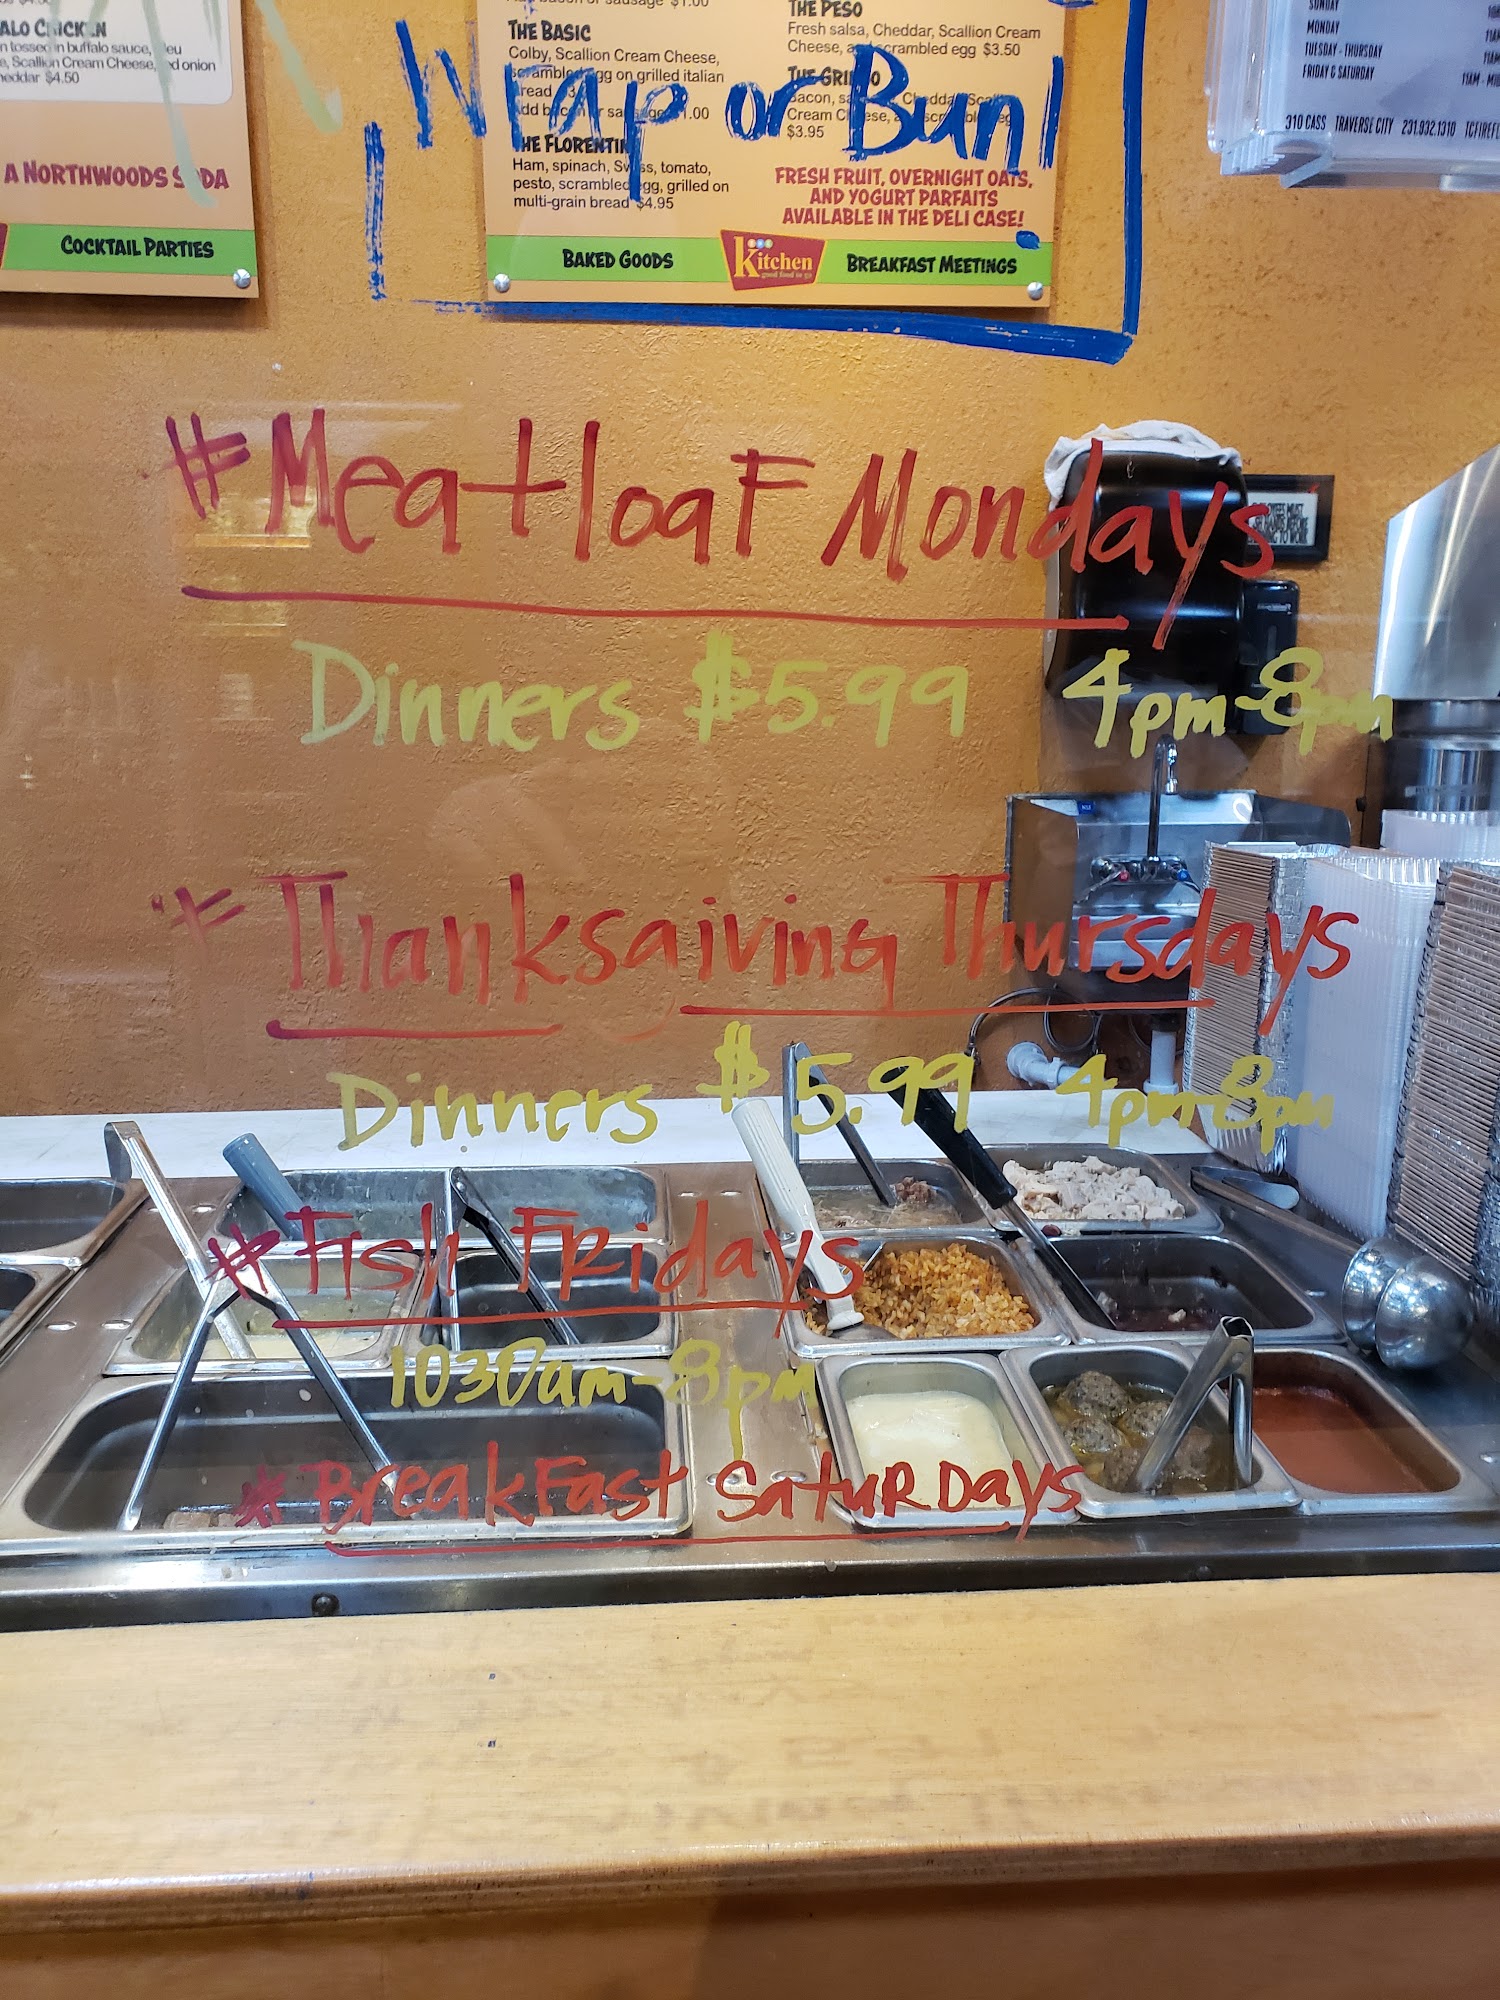 ALO CHICKEN
n tossed in buffalo sauce,
Scallion Cream Cheese, red onion
heddar $4.50
A NORTHWOODS SODA
COCKTAIL PARTIES
bacon or sausage $1.00
THE BASIC
Colby, Scallion Cream Cheese,
scrambled egg on grilled italian
bread
add bacon or sausage $1.00
THE FLORENTINE
Ham, spinach, Swiss, tomato,
pesto, scrambled egg, grilled on
multi-grain bread $4.95
THE PESO
Fresh salsa, Cheddar, Scallion Cream
Cheese, and scrambled egg $3.50
THE GRINGO
Bacon, salsa, Cheddar, Scallion
Cream Cheese, and scrambled egg
$3.95
FRESH FRUIT, OVERNIGHT OATS,
AND YOGURT PARFAITS
AVAILABLE IN THE DELI CASE!
BAKED GOODS
Kitchen
good food to go
BREAKFAST MEETINGS
Wrap or Bun!
SUNDAY
MONDAY
TUESDAY - THURSDAY
FRIDAY & SATURDAY
310 CASS TRAVERSE CITY 231.932.1310 TCFIREFL
#Meatloaf Mondays
Dinners $5.99 4pm-8pm
#Thanksgiving Thursdays
Dinners $5.99 4pm-8pm
#Fish Fridays
1030am-8pm
#Breakfast Saturdays